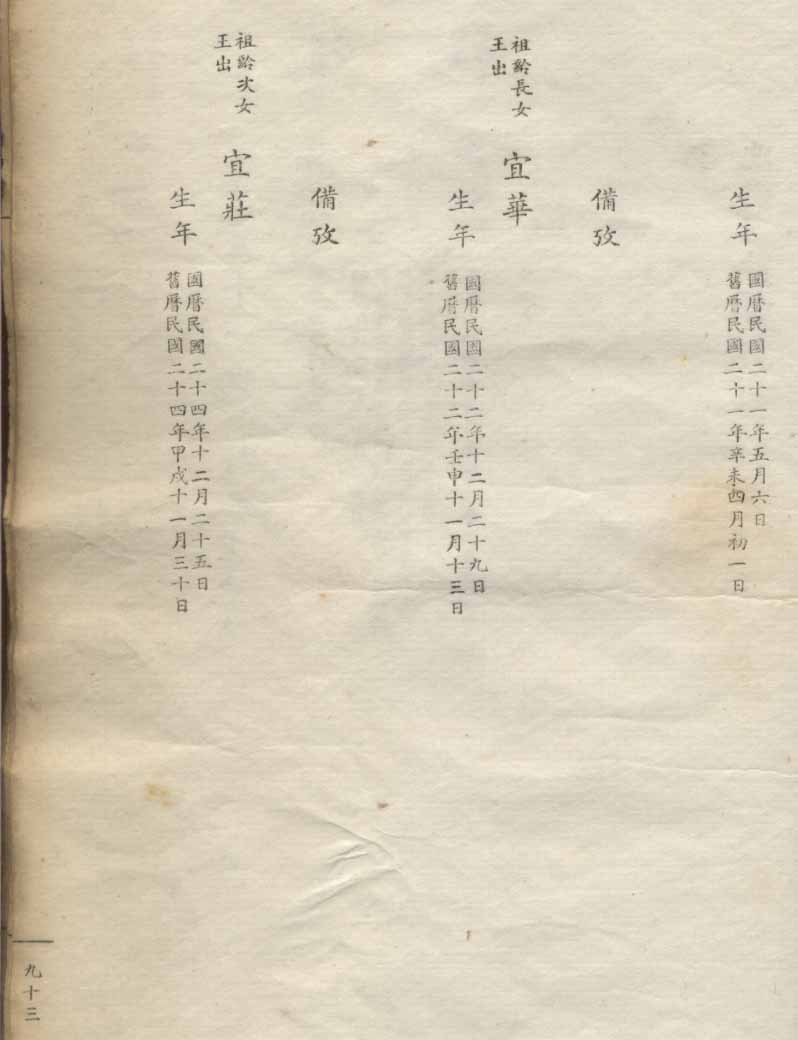 生年
國曆民國二十一年五月六日
舊曆民國二十一年辛未四月初一日
備攷
祖齡長女
王出
宜華
生年
國曆民國二十二年十二月二十九日
舊曆民國二十二年壬申十一月十三日
備攷
祖齡次女
王出
宜莊
生年
國曆民國二十四年十二月二十五日
舊曆民國二十四年甲戌十一月三十日
九十三